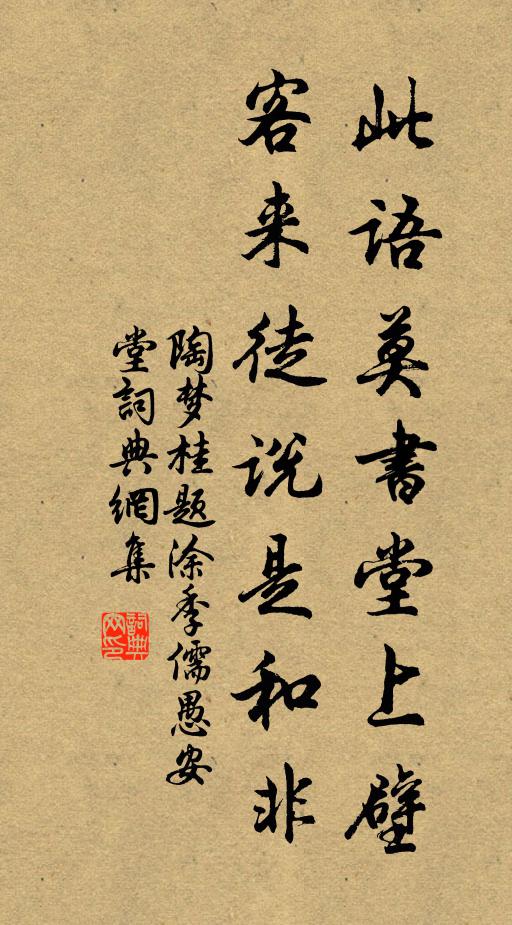 此语莫書堂上壁
客来徒说是和非
陶梦桂题涂季儒愚安
堂詞典網集
詞典
网印